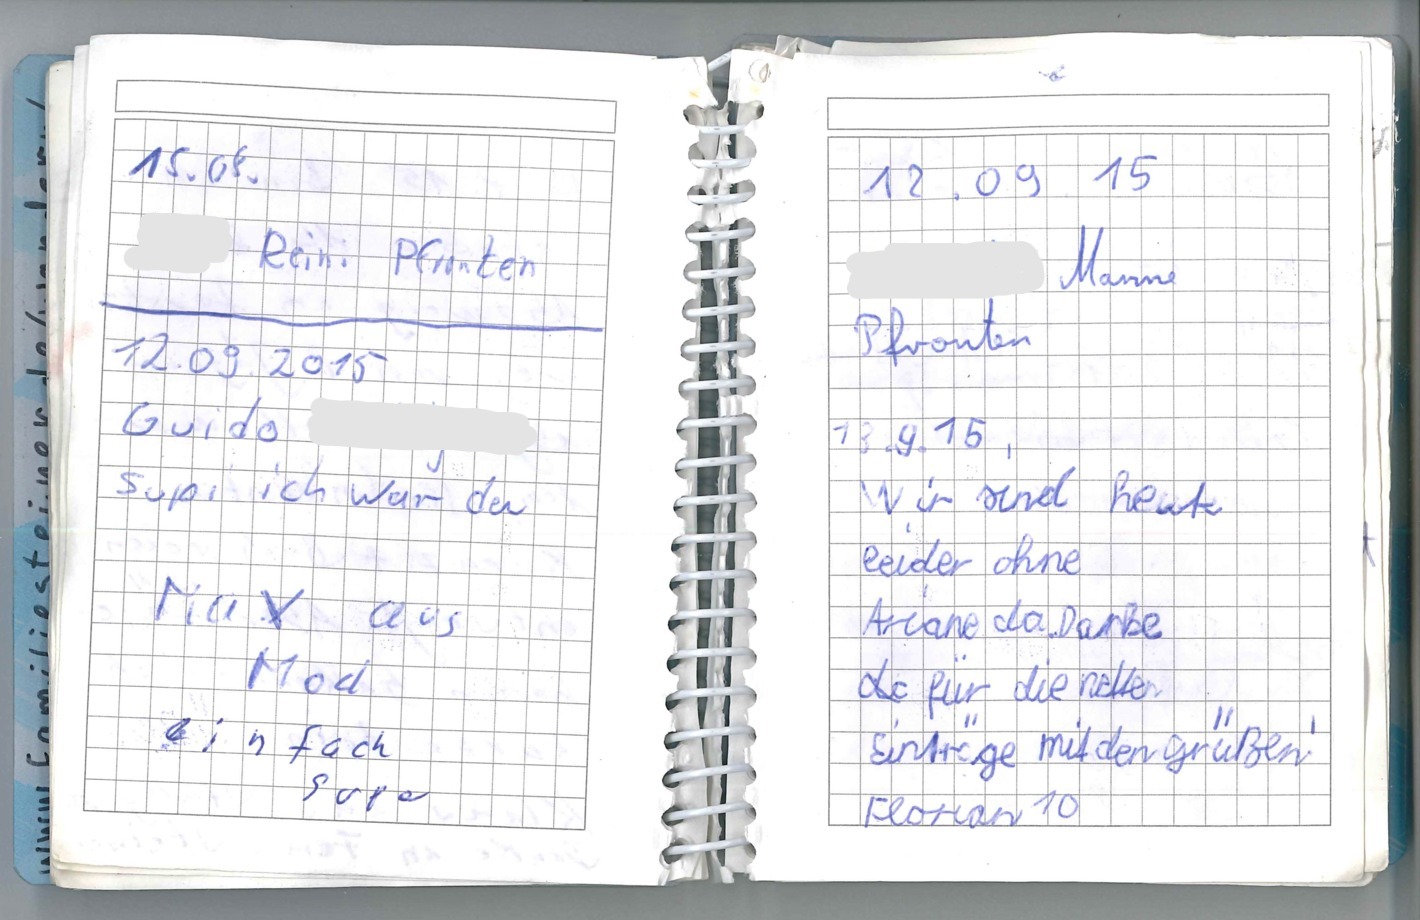 www.familiesteiner.de/wandern/
15.08.
Reini Pfronten
12.09.2015
Guido
Supi ich war da
Max aus
Mod
einfach
supa
12.09 15
Manne
Pfronten
13.9.15,
Wir sind heute
leider ohne
Ariane da. Danke
da für die netten
Einträge mit den grüßen!
Florian 10